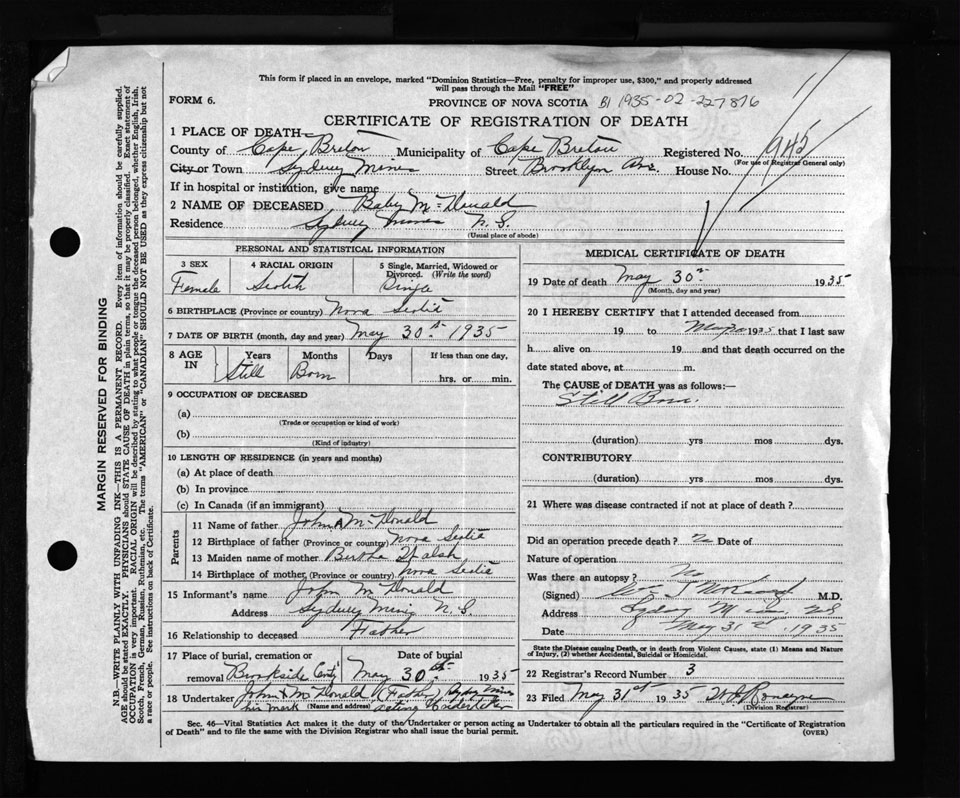 This form if placed in an envelope, marked "Dominion Statistics—Free, penalty for improper use, $300," and properly addressed
will pass through the Mail "FREE"
FORM 6.
PROVINCE OF NOVA SCOTIA B1 1935-02-227876
CERTIFICATE OF REGISTRATION OF DEATH
1 PLACE OF DEATH—
County of Cape Breton Municipality of Cape Breton Registered No. 945
(For use of Registrar General only)
City or Town Sydney Mines Street Brooklyn Ave. House No.
If in hospital or institution, give name
2 NAME OF DECEASED Baby McDonald
Residence Sydney Mines N.S.
(Usual place of abode)
PERSONAL AND STATISTICAL INFORMATION
3 SEX Female
4 RACIAL ORIGIN Scotch
5 Single, Married, Widowed or Divorced. (Write the word) Single
6 BIRTHPLACE (Province or country) Nova Scotia
7 DATE OF BIRTH (month, day and year) May 30th 1935
8 AGE IN Years Months Days If less than one day,
Still Born hrs. or min.
9 OCCUPATION OF DECEASED
(a)
(Trade or occupation or kind of work)
(b)
(Kind of industry)
10 LENGTH OF RESIDENCE (in years and months)
(a) At place of death
(b) In province
(c) In Canada (if an immigrant)
Parents
11 Name of father John A McDonald
12 Birthplace of father (Province or country) Nova Scotia
13 Maiden name of mother Bertha Walsh
14 Birthplace of mother (Province or country) Nova Scotia
15 Informant's name John McDonald
Address Sydney Mines N.S.
16 Relationship to deceased Father
17 Place of burial, cremation or removal Date of burial
Brookside May 30th 1935
18 Undertaker John A McDonald (Father) Sydney Mines
his mark (Name and address) acting Undertaker
MEDICAL CERTIFICATE OF DEATH
19 Date of death May 30th 1935
(Month, day and year)
20 I HEREBY CERTIFY that I attended deceased from
19 to 1935 that I last saw
h alive on 19 and that death occurred on the
date stated above, at m.
The CAUSE of DEATH was as follows:—
Still Born.
(duration) yrs mos dys.
CONTRIBUTORY
(duration) yrs mos dys.
21 Where was disease contracted if not at place of death?
Did an operation precede death? no Date of
Nature of operation
Was there an autopsy? No
(Signed) M.D.
Address Sydney Mines NS
Date May 31st 1935
State the Disease causing Death, or in death from Violent Causes, state (1) Means and Nature
of Injury, (2) whether Accidental, Suicidal or Homicidal.
22 Registrar's Record Number 3
23 Filed May 31st 1935
(Division Registrar)
Sec. 46—Vital Statistics Act makes it the duty of the Undertaker or person acting as Undertaker to obtain all the particulars required in the "Certificate of Registration
of Death" and to file the same with the Division Registrar who shall issue the burial permit. (OVER)
MARGIN RESERVED FOR BINDING
N.B.—WRITE PLAINLY WITH UNFADING INK—THIS IS A PERMANENT RECORD. Every item of information should be carefully supplied.
AGE should be stated EXACTLY. PHYSICIANS should STATE CAUSE OF DEATH in plain terms, so that it may be properly classified. Exact statement of
OCCUPATION is very important. RACIAL ORIGIN will be described by stating to what people or tongue the deceased person belonged, whether English, Irish,
Scotch, French, German, Russian, Ruthenian, etc. The terms "AMERICAN" or "CANADIAN" SHOULD NOT BE USED as they express citizenship but not
a race or people. See instructions on back of Certificate.